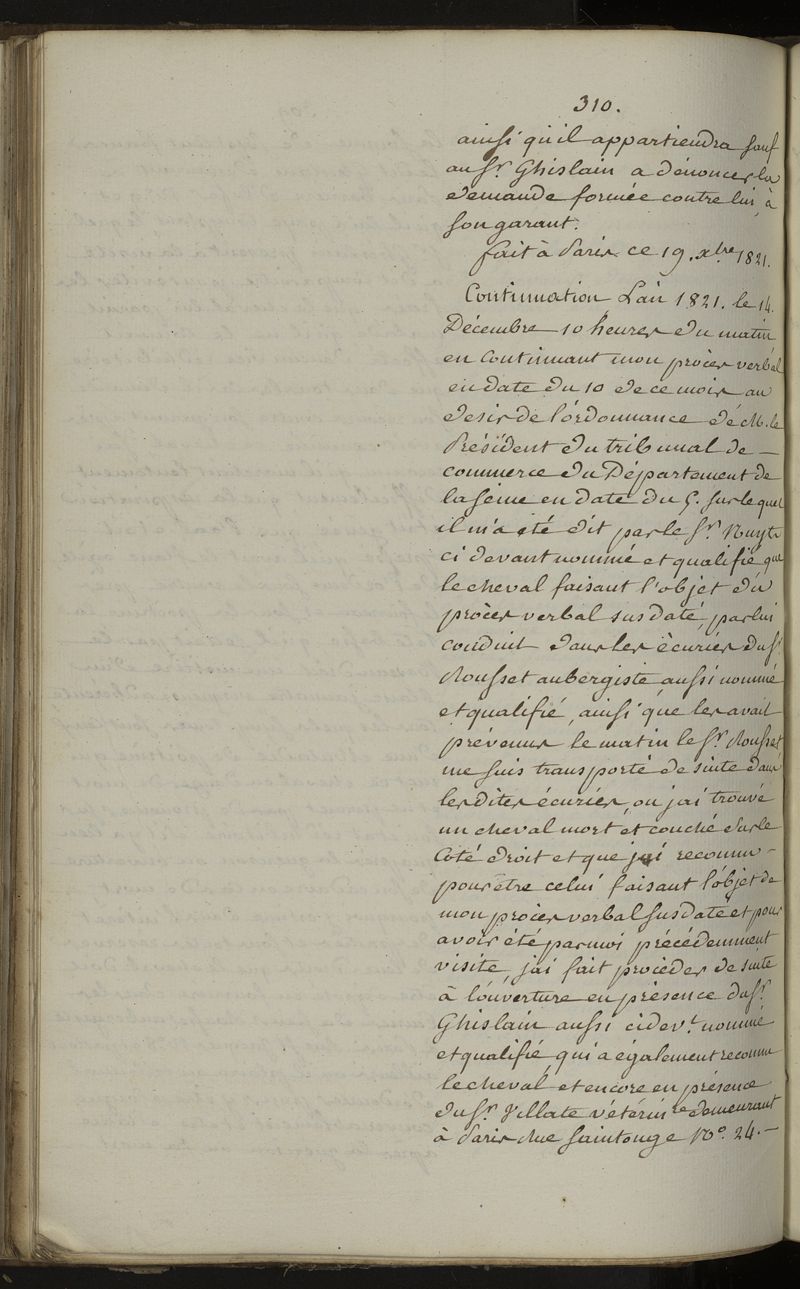 310.
ainsi qu'il appartiendra sauf
au Sr. Ghislain a dénoncer la
demande formée contre lui, à
son garant.
fait à Paris ce 19. xbre 1821.
Continuation L'an 1821. le 14.
Décembre 10 heures du matin
en Continuant mon procès verbal
en date du 10 de ce mois au
desir de l'ordonnance dé M. le
Président du tribunal de —
commerce du Département de
la Seine en date du 5. sur le quel
il m'a été dit par le Sr. Nuyts
ci devant nommé et qualifié que
le cheval faisant l'objet du
procès verbal sus daté, par lui
conduit dans les écuries du Sr.
Rousset aubergiste aussi nommé
et qualifié, ainsi que les avait
prévenus le matin le Sr. Rousset
me suis transporté de suite dans
les dites écuries, ou j'ai trouvé
un cheval mort et couché sur le
Coté droit et que j'ai reconnu -
pour être celui faisant l'objet de
mon procès verbal sus daté et pour
avoir été par moi précédemment
visite, j'ai fait procéder de suite
à l'ouverture en présence du Sr.
Ghislain aussi cidevt. nommé
et qualifié, qui a également reconnu
le cheval, et encore en présence
du Sr. Villate vétérinre demeurant
à Paris Rue Saintonge No. 24. —